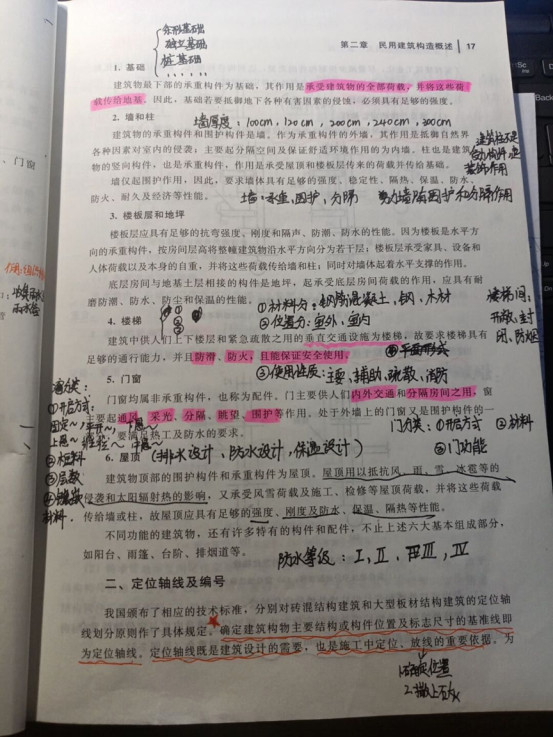 条形基础
独立基础
桩基础
第二章 民用建筑构造概述 17
1. 基础
建筑物最下部的承重构件为基础,其作用是承受建筑物的全部荷载,并将这些荷
载传给地基。因此,基础若要抵御地下各种有害因素的侵蚀,必须具有足够的强度。
2. 墙和柱
墙厚度:100cm,120cm,200cm,240cm,300cm
建筑物的承重构件和围护构件是墙。作为承重构件的外墙,其作用是抵御自然界
各种因素对室内的侵袭;主要起分隔空间及保证舒适环境作用的为内墙。柱也是建筑
物的竖向构件,也是承重构件,作用是承受屋顶和楼板层传来的荷载并传给基础。
墙仅起围护作用,因此,要求墙体具有足够的强度、稳定性、隔热、保温、防水、
防火、耐久及经济等性能。
墙:承重,围护,分隔
3. 楼板层和地坪
楼板层应具有足够的抗弯强度、刚度和隔声、防潮、防水的性能。因为楼板是水平方
向的承重构件,按房间层高将整幢建筑物沿水平方向分为若干层;楼板层承受家具、设备和
人体荷载以及本身的自重,并将这些荷载传给墙和柱;同时对墙体起着水平支撑的作用。
底层房间与地基土层相接的构件是地坪,起承受底层房间荷载的作用,应具有耐
磨防潮、防水、防尘和保温的性能。
①材料分:钢筋混凝土,钢,木材
4. 楼梯
②位置分:室外,室内
楼梯间:
开敞,封
闭,防烟
建筑中供人们上下楼层和紧急疏散之用的垂直交通设施为楼梯,故要求楼梯具有
足够的通行能力,并且防滑、防火,且能保证安全使用。
④平面形式
③使用性质:主要,辅助,疏散,消防
5. 门窗
门窗均属非承重构件,也称为配件。门主要供人们内外交通和分隔房间之用,窗
主要起通风、采光、分隔、眺望、围护等作用。处于外墙上的门窗又是围护构件的一
要满足热工及防水的要求。
窗分类:
①开启方式:
③层数
材料.
门分类:①开启方式 ②材料
③门功能
6. 屋顶 (排水设计,防水设计,保温设计)
建筑物顶部的围护构件和承重构件为屋顶。屋顶用以抵抗风、雨、雪、冰雹等的
侵袭和太阳辐射热的影响,又承受风雪荷载及施工、检修等屋顶荷载,并将这些荷载
传给墙或柱,故屋顶应具有足够的强度、刚度及防水、保温、隔热等性能。
不同功能的建筑物,还有许多特有的构件和配件,不止上述六大基本组成部分,
如阳台、雨篷、台阶、排烟道等。
防水等级:Ⅰ,Ⅱ,Ⅲ,Ⅳ
二、定位轴线及编号
我国颁布了相应的技术标准,分别对砖混结构建筑和大型板材结构建筑的定位轴
线划分原则作了具体规定。确定建筑构物主要结构或构件位置及标志尺寸的基准线即
为定位轴线。定位轴线既是建筑设计的需要,也是施工中定位、放线的重要依据。为